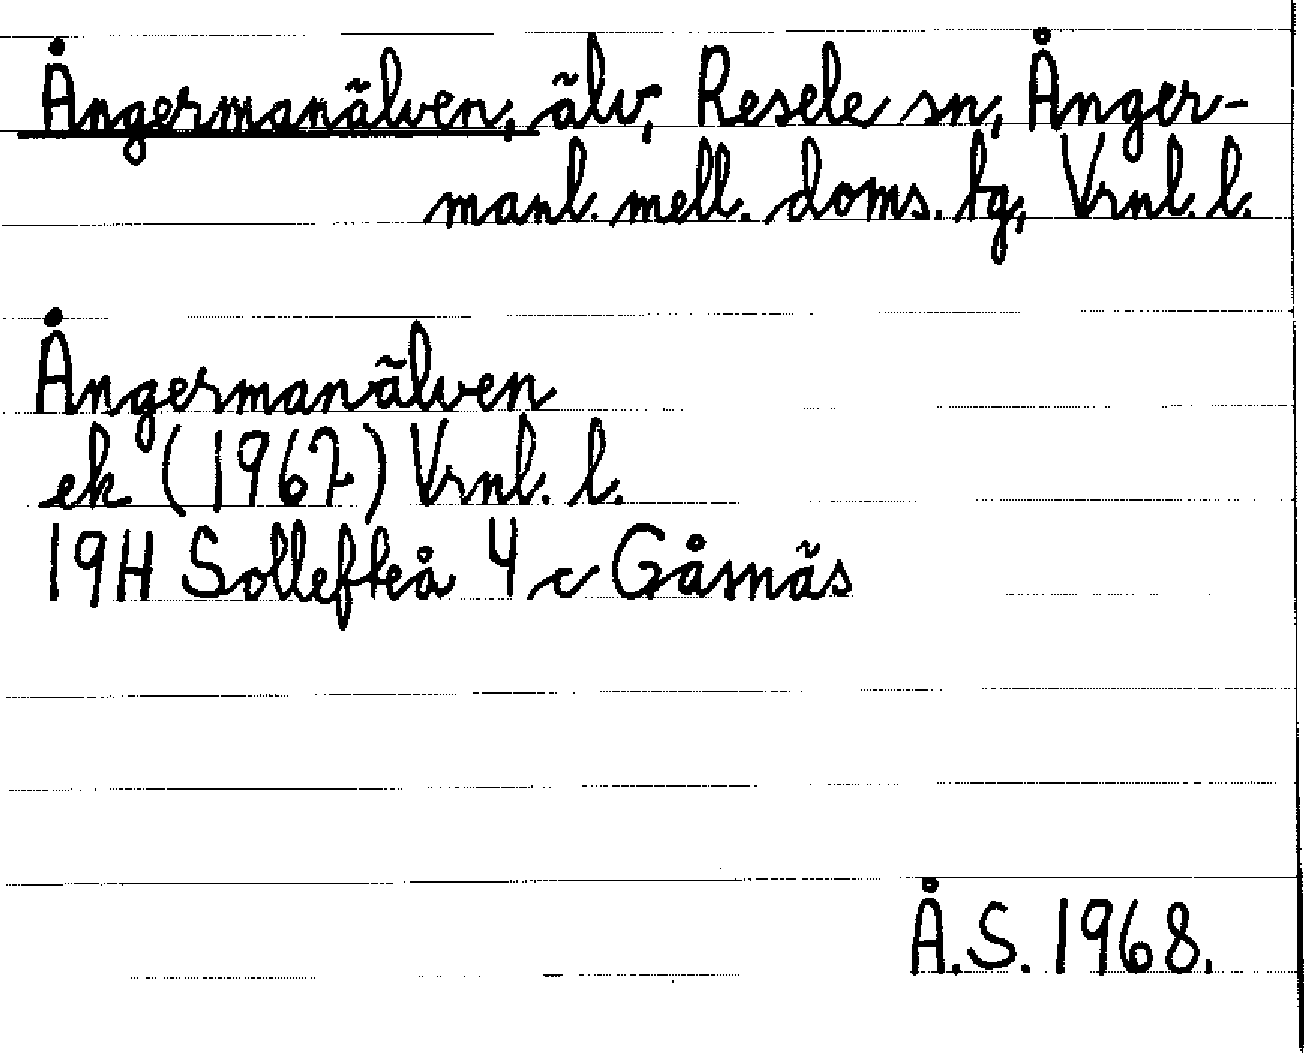 Ångermanälven, älv, Resele sn, Ånger-
manl. mell. doms. tg, Vrnl. l.
Ångermanälven
ek (1967) Vrnl. l.
19H Sollefteå 4 c Gåsnäs
Å.S. 1968.